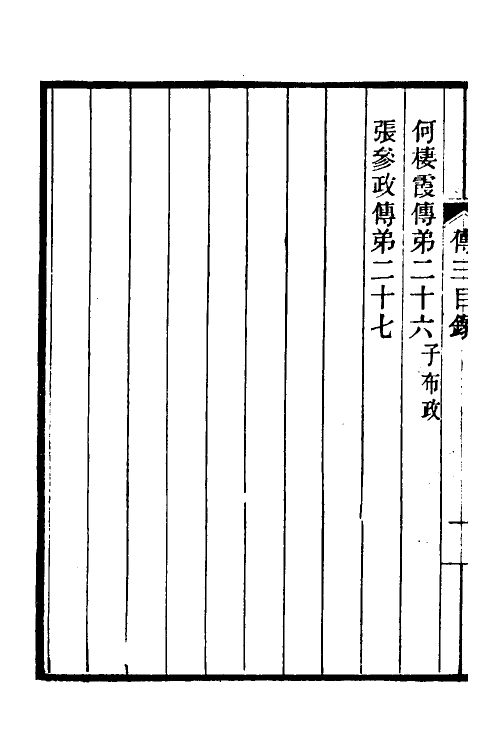 傳三目錄
何棲霞傳弟二十六子布政
張參政傳弟二十七